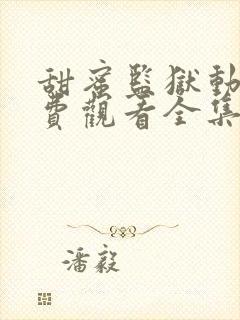 甜蜜監獄動
費觀看全集
潘毅